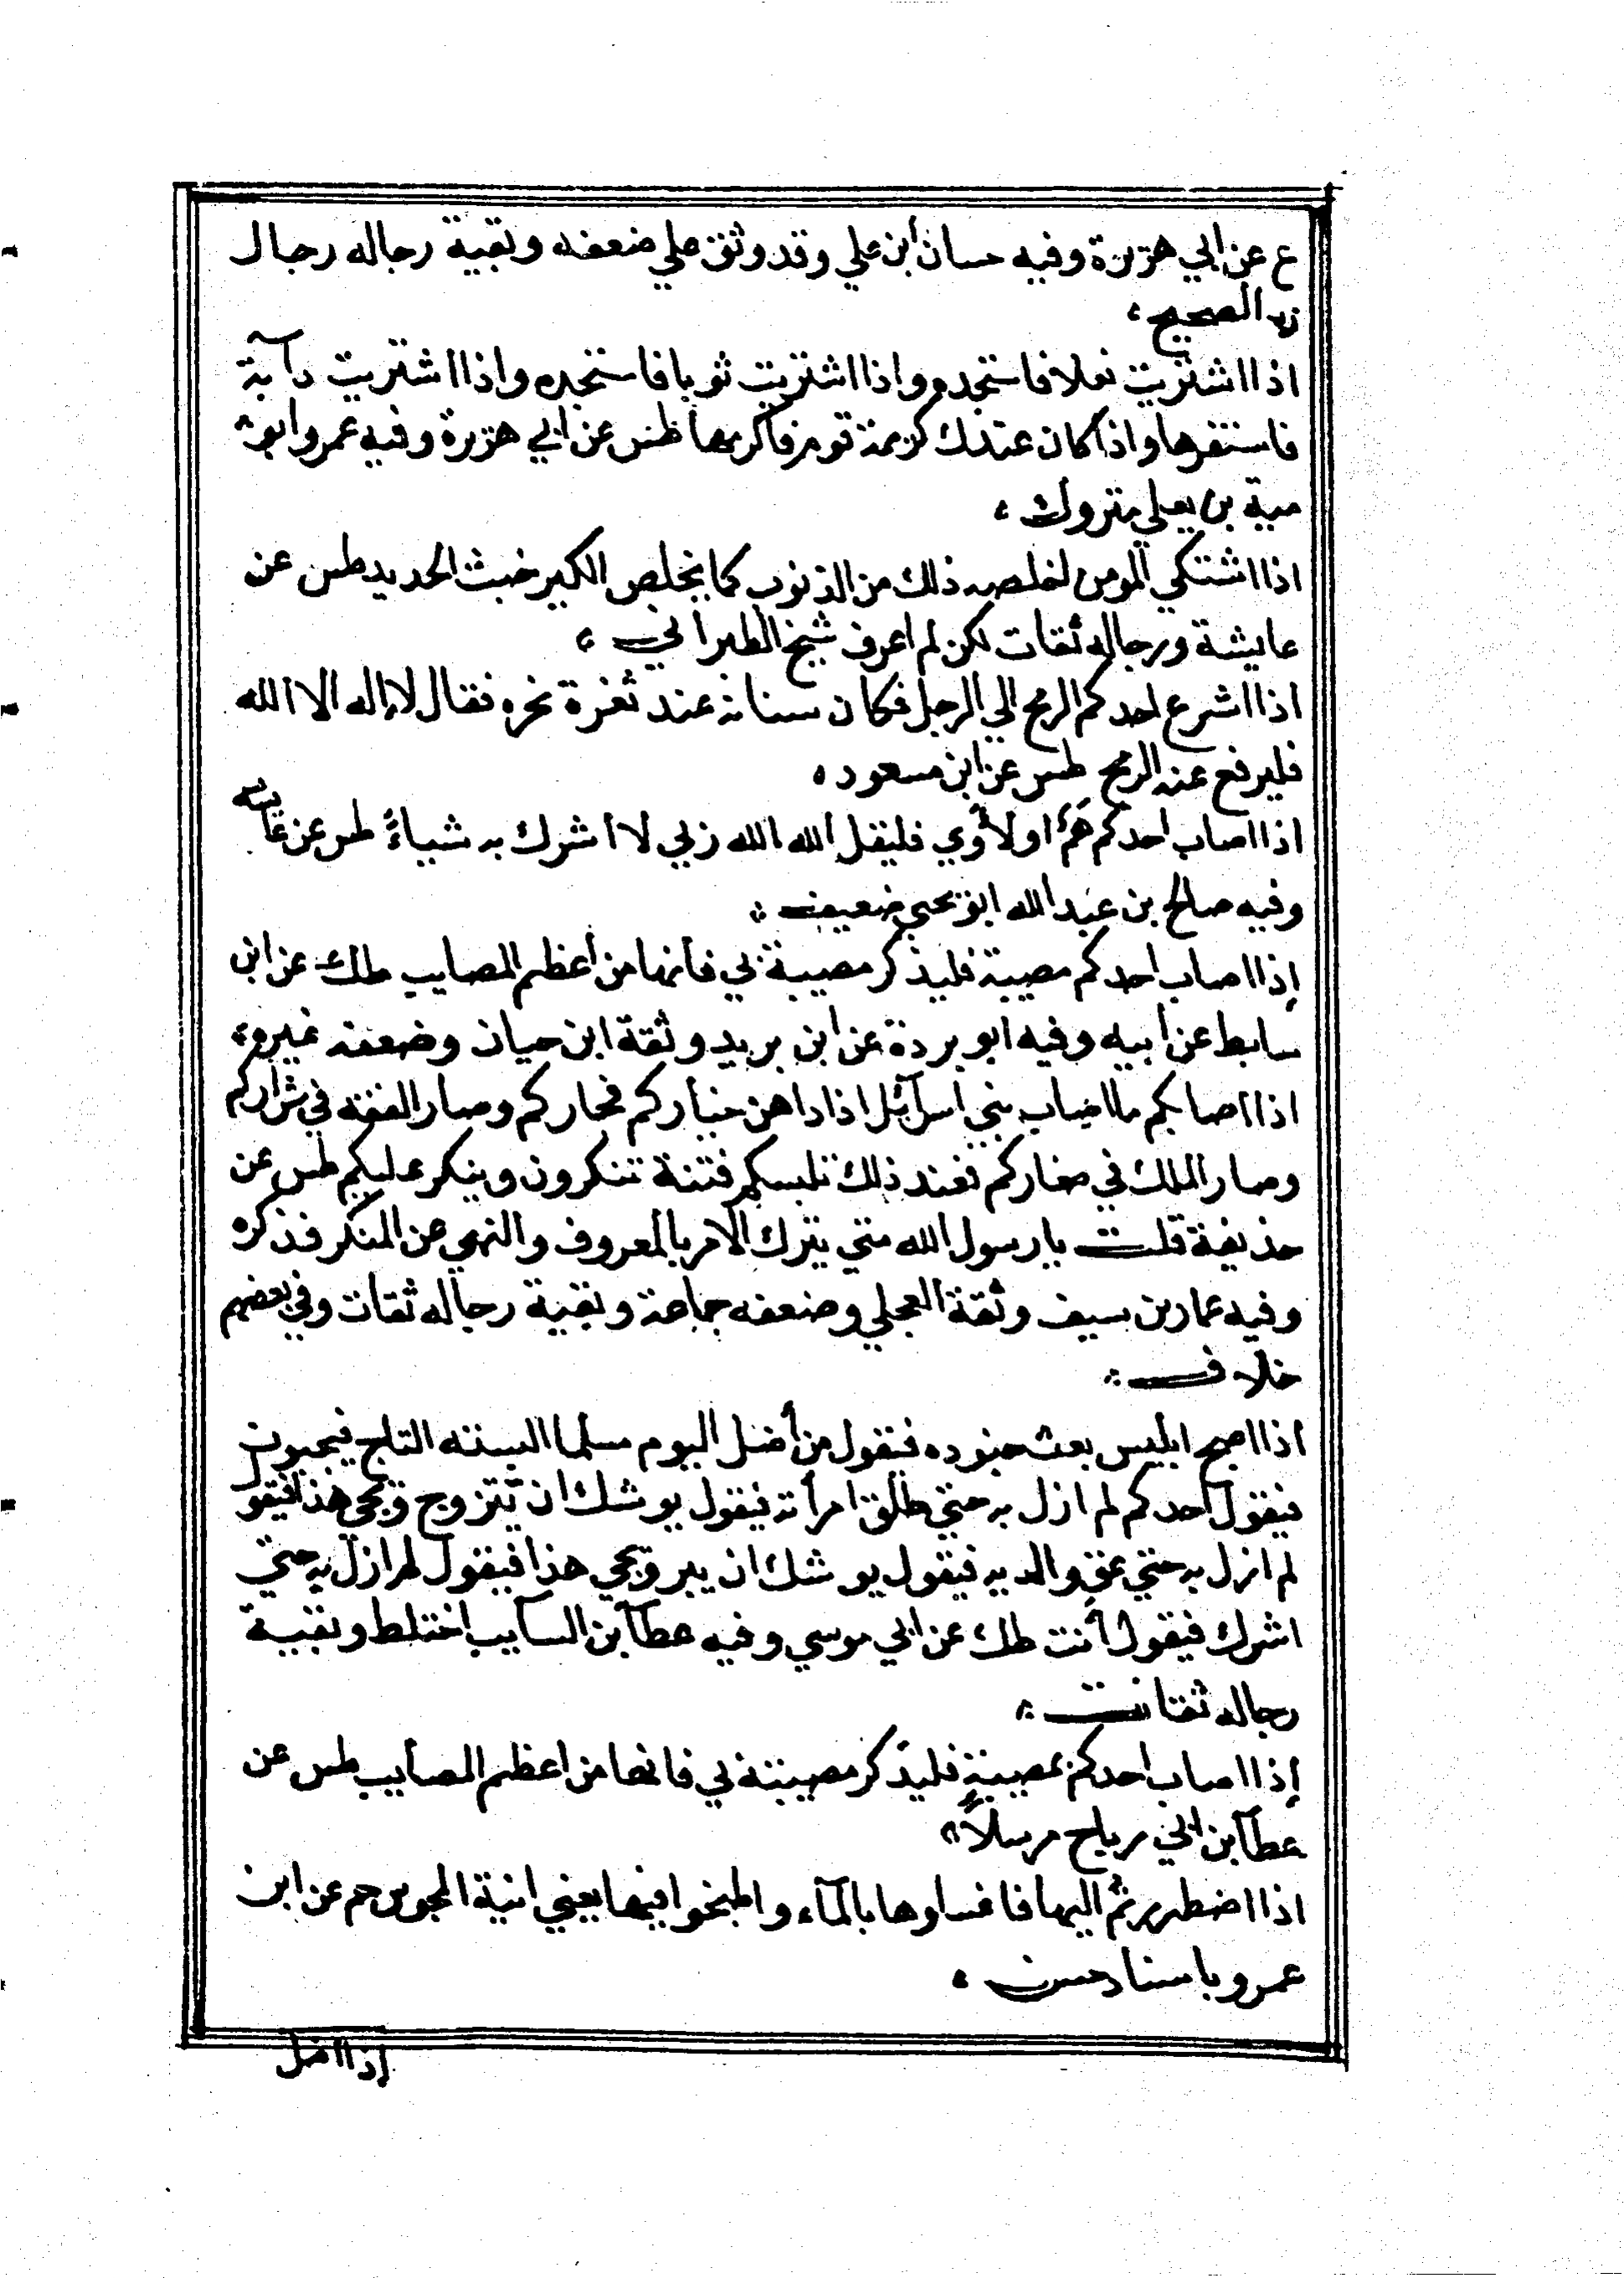 ع عن ابي هريرة وفيه حسان ابن علي وقد وثق علي ضعفه وبقية رجاله رجال
الصحيح
اذا اشتريت نعلا فاستجده واذا اشتريت ثوبا فاستجده واذا اشتريت دآبة
فاستفرها واذا كان عندك كريمة قوم فاكرمها طس عن ابي هريرة وفيه عمرو ابو
مية بن يعلي متروك
اذا اشتكي المومن اخلصه ذلك من الذنوب كما يخلص الكير خبث الحديد طس عن
عايشة ورجاله ثقات لكن لم اعرف شيخ الطبراني
اذا اشرع احدكم الرمح الي الرجل فكان سنانه عند ثغرة نحره فقال لا إله الا الله
فليرفع عنه الرمح طس عن ابن مسعود
اذا اصاب احدكم هم اولأوي فليقل الله الله ربي لا أشرك به شياءً طس عن عايشه
وفيه صالح بن عبد الله ابو يحيي ضعيف
إذا اصاب احدكم مصيبة فليذكر مصيبة بي فأنها من أعظم المصايب طك عن ابن
سابط عن أبيه وفيه ابو بردة عن ابن بريد وثقة ابن حيان وضعفه غيره
اذا اصابكم ما اصاب بني اسرآئل اذا داهن خياركم فجاركم وصار الفقه في شراركم
وصار الملك في صغاركم فعند ذلك تلبسكم فتنة تنكرون وينكر عليكم طس عن
حذيفة قلت يا رسول الله متي يترك الامر بالمعروف والنهي عن المنكر فذكره
وفيه عمار بن سيف وثقة العجلي وضعفه جماعة وبقية رجاله ثقات وفي بعضهم
خلاف
اذا اصبح ابليس بعث جنوده فيقول من أضل اليوم مسلما البسته التاج فيجيون
فيقول احدكم لم ازل به حتي طلق امرأته فيقول يوشك ان يتزوج ويجي هذا فيقول
لم ازل به حتي عق والديه فيقول يوشك ان يبر ويجي هذا فيقول لم ازل به حتي
اشرك فيقول أنت طك عن ابي موسي وفيه عطآ بن السآيب اختلط وبقية
رجاله ثقات
إذا اصاب احدكم بمصيبة فليذكر مصيبته بي فانها من اعظم المصايب طس عن
عطآ بن ابي رباح مرسلاً
اذا اضطررتم اليها فاغسلوها بالمآء واطبخوا فيها يعني انية المجوس حم عن ابن
عمرو باسناد حسن
إذا اضل